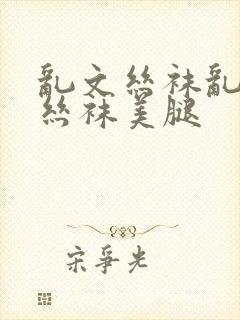 亂文絲袜亂
絲袜美腿
宋爭光